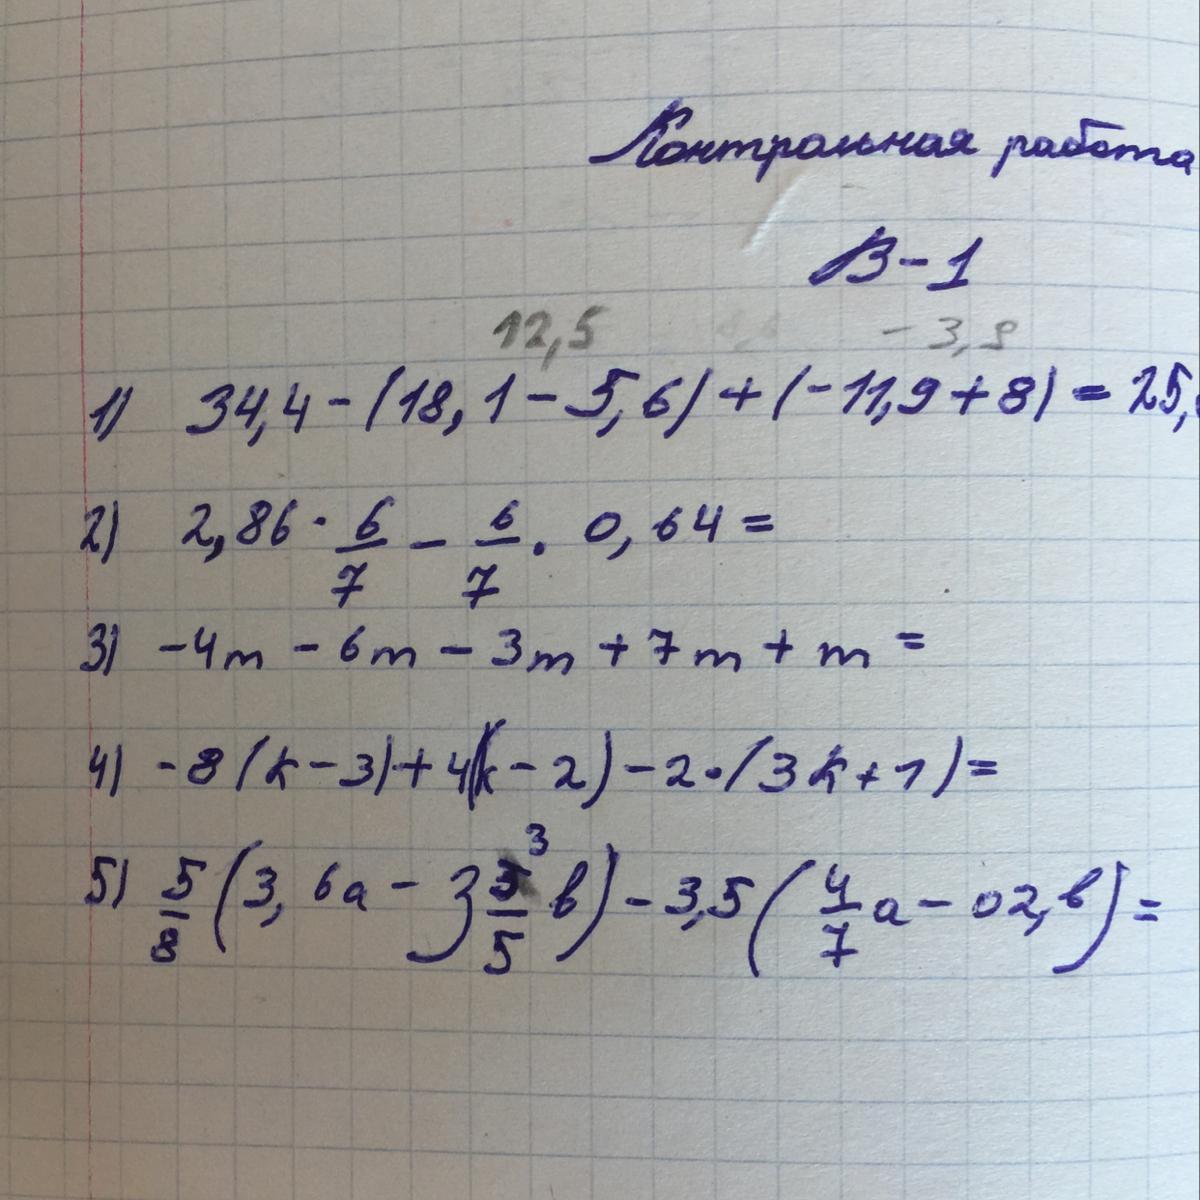 Контрольная работа
В-1
12,5 - 3,9
1) 34,4 - (18,1 - 5,6) + (-11,9 + 8) = 25,
2) 2,86 · 6/7 - 6/7 · 0,64 =
3) -4m - 6m - 3m + 7m + m =
4) -8(k - 3) + 4(k - 2) - 2·(3k + 1) =
5) 5/8 (3,6a - 3 3/5 в) - 3,5 (4/7 a - 02,в) =